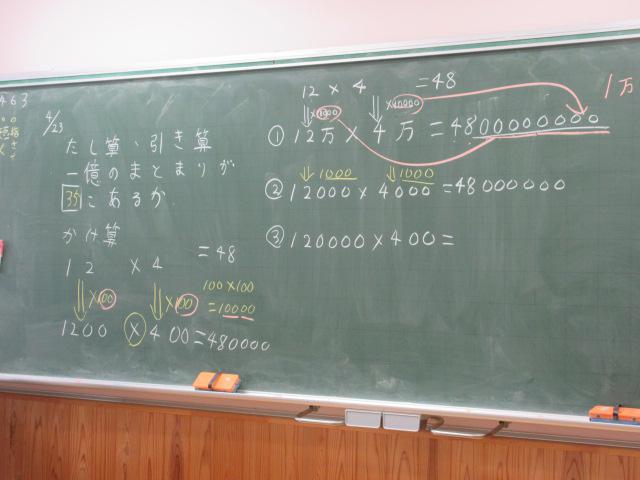 463
4/23
たし算、引き算
一億のまとまりが
35こあるか
かけ算
12 × 4 =48
×100 ×100 100×100
=10000
1200 × 400=480000
12 × 4 =48
×10000
1万
① 12万 × 4万 =4800000000
1000 1000
② 12000×4000=48000000
③ 120000×400=